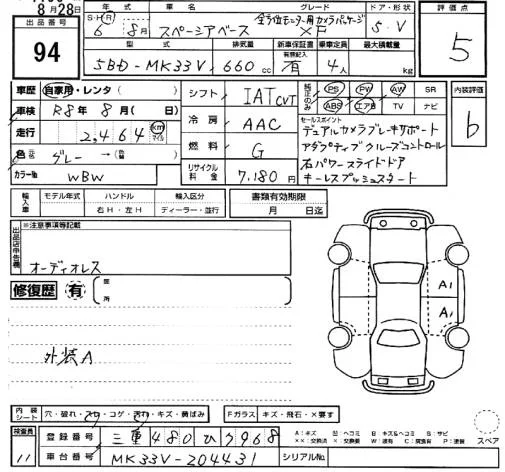 8月28日
出品番号
94
年式 車名 グレード ドア・形状
S・H・R 6年8月 スペーシアベース 全方位モニター用カメラパッケージ XF 5・V
評価点
5
型式 排気量 新車保証書 乗車定員 最大積載量
有無記入
5BD-MK33V 660cc 有 4人 kg
車歴 自家用・レンタ( )
車検 R8年8月( 日)
走行 2,464 km マイル
色 元色 グレー→ 色替
カラーNo. WBW
シフト IAT CVT
冷房 AAC
燃料 G
リサイクル料金 7,180円
純正のみ
PS PW AW SR
ABS エアB TV ナビ
内装評価
b
セールスポイント
デュアルカメラブレーキサポート
アダプティブクルーズコントロール
右パワースライドドア
キーレスプッシュスタート
輸入車 モデル年式 ハンドル 輸入区分
右H・左H ディーラー・並行
書類有効期限
月 日迄
出品店申告欄
※注意事項等記載
オーディオレス
修復歴 有 箇所
外装A
A1
A1
内装シート 穴・破れ・スレ・コゲ・汚れ・キズ・黄ばみ
Fガラス キズ・飛石・×要す
検査員 11
登録番号 三重480ひ7968
車台番号 MK33V-204431
シリアルNo.
A:キズ U:ヘコミ B:キズ&ヘコミ S:サビ
××:交換済 ×:交換要 W:波有 C:腐食有 P:塗装
スペア